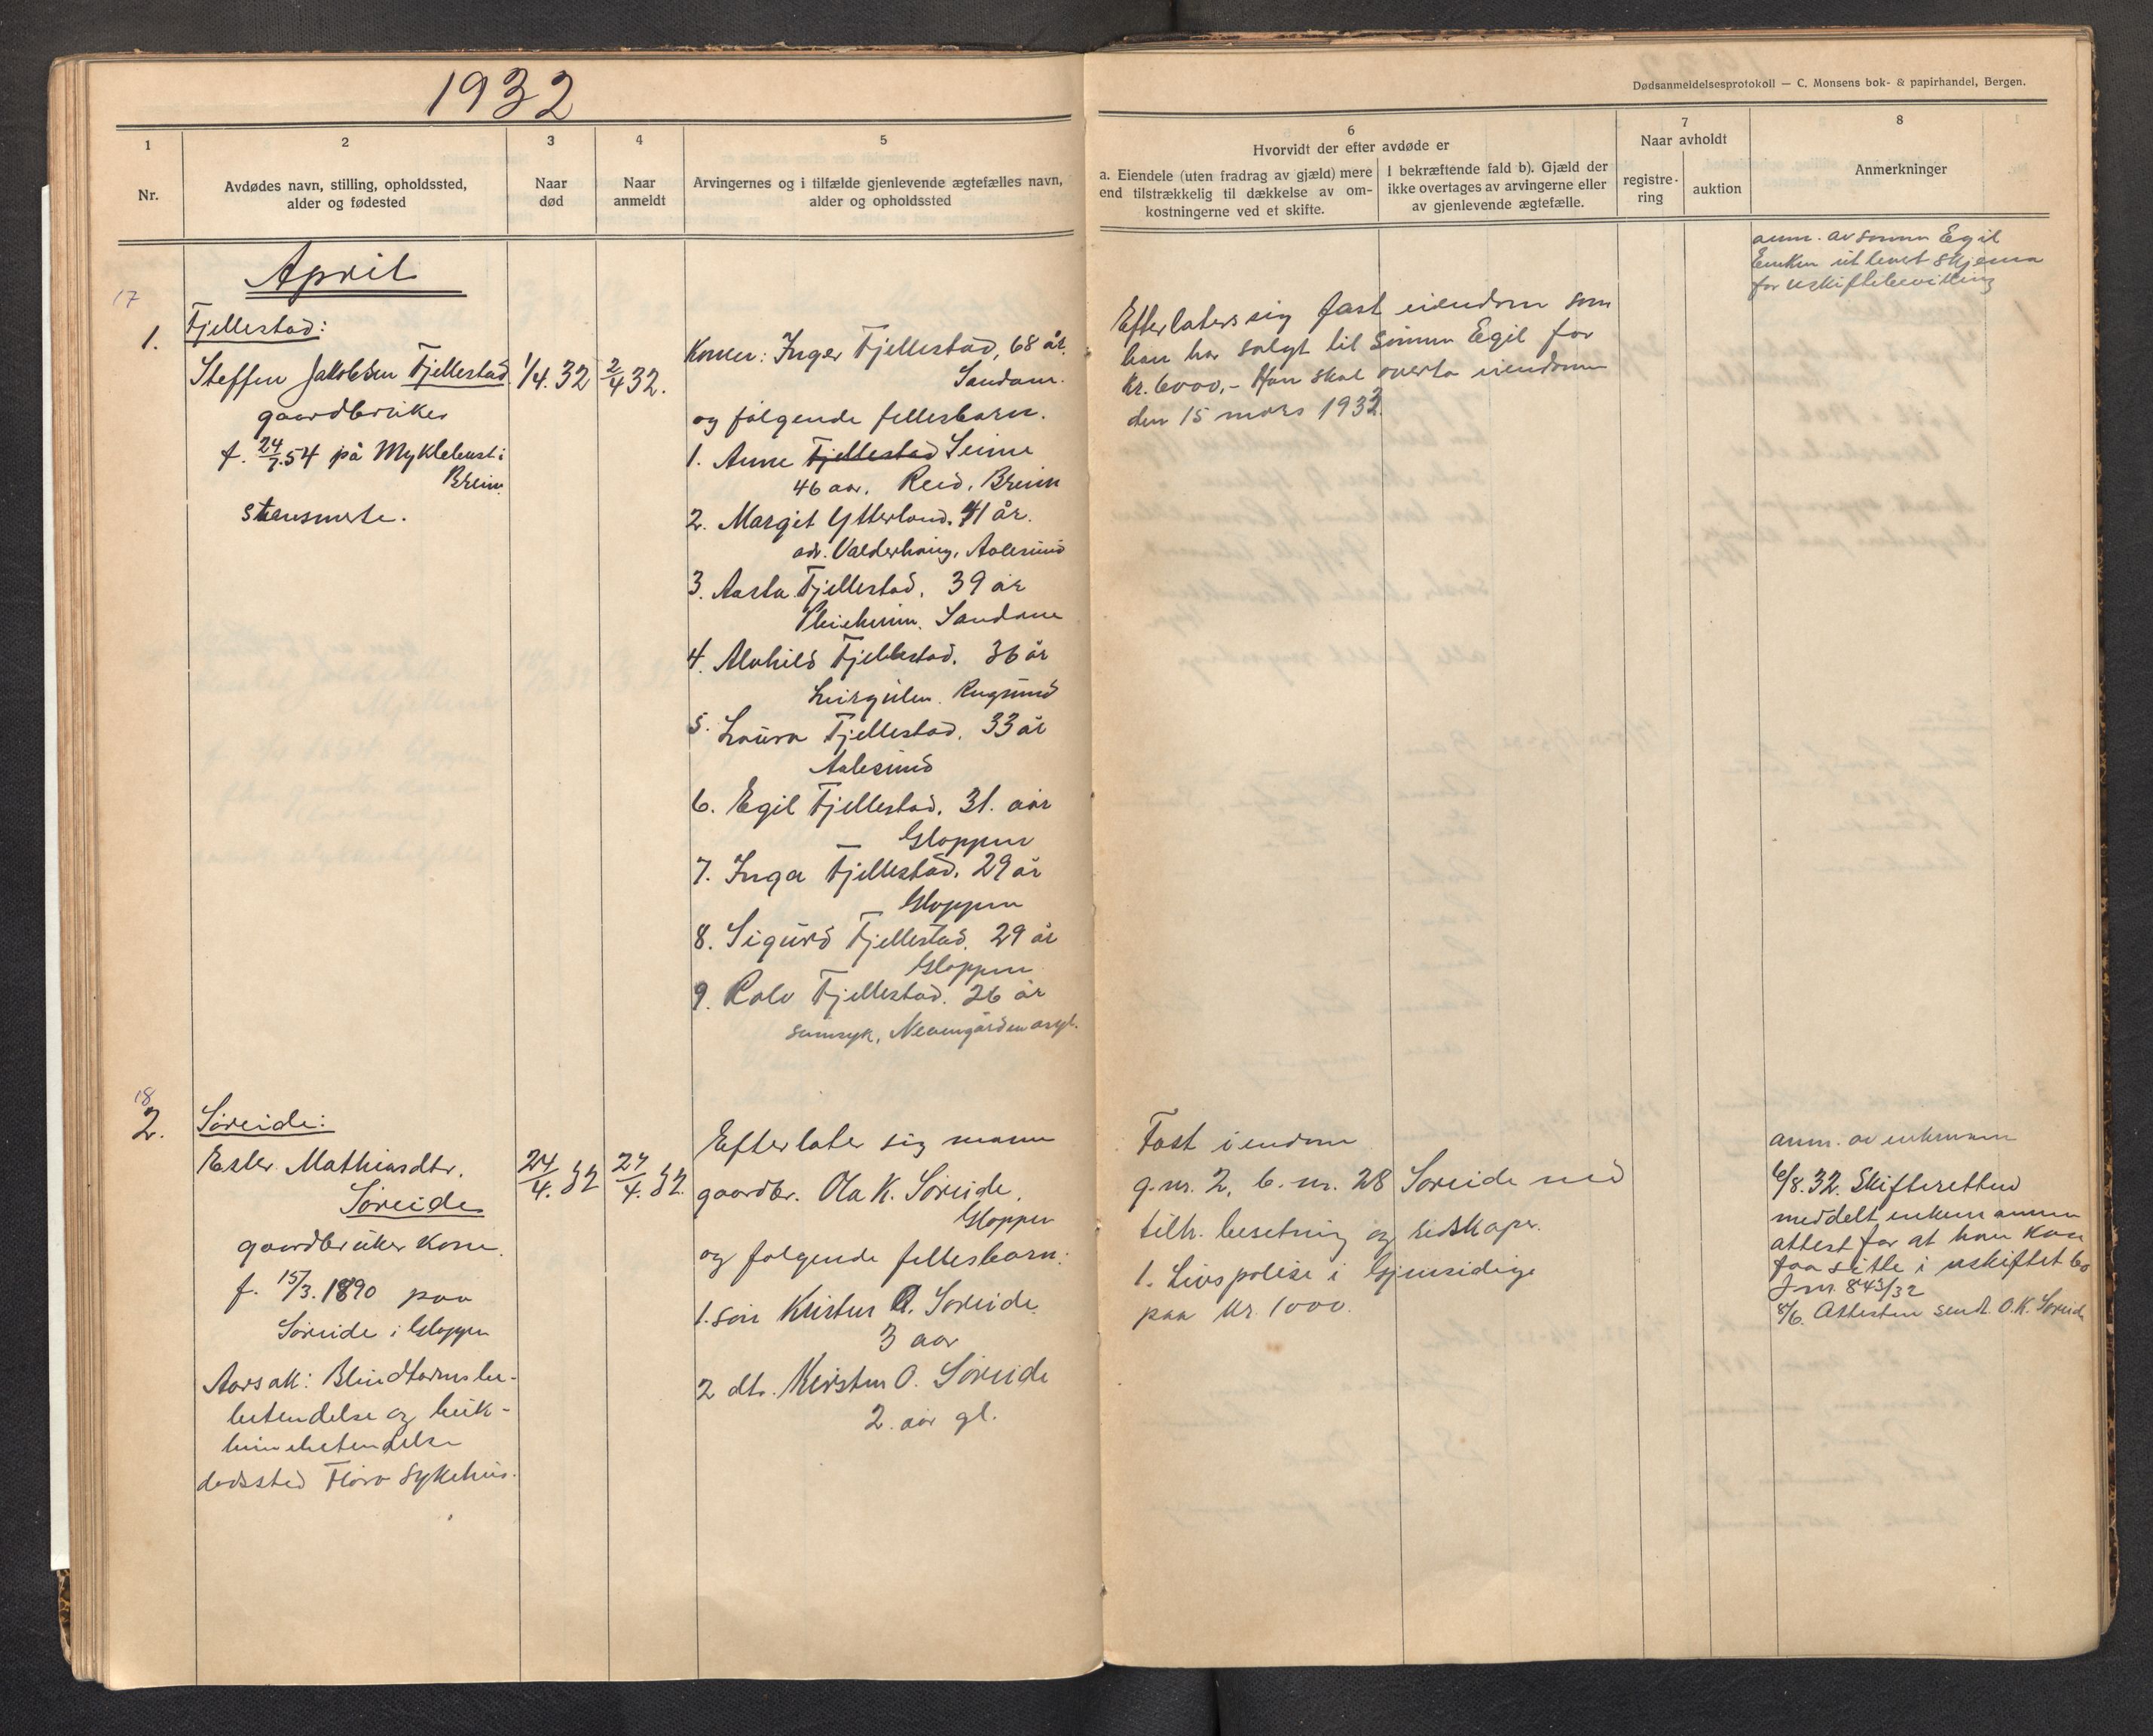 1932
Dødsanmeldelsesprotokoll — C. Monsens bok- & papirhandel, Bergen.
1
Nr.
2
Avdødes navn, stilling, opholdssted,
alder og fødested
3
Naar
død
4
Naar
anmeldt
5
Arvingernes og i tilfælde gjenlevende ægtefælles navn,
alder og opholdssted
6
Hvorvidt der efter avdøde er
a. Eiendele (uten fradrag av gjæld) mere
end tilstrækkelig til dækkelse av om-
kostningerne ved et skifte.
I bekræftende fald b). Gjæld der
ikke overtages av arvingerne eller
av gjenlevende ægtefælle.
7
Naar avholdt
registre-
ring
auktion
8
Anmerkninger
April
17
1.
Fjellestad:
Steffen Jakobsen Fjellestad
gaardbruker
f. 24/7.54 på Myklebust i
Breim
1/4.32
2/4 32.
Konen: Inger Fjellestad, 68 år.
Sandane.
og følgende fellesbarn.
1. Anne Fjellestad Seime
46 aar. Reed, Breim
2. Margit Ytterland. 41 år.
adr. Valderhaug, Aalesund
3. Aasta Fjellestad. 39 år
Pleieheim. Sandane
4. Alvhild Fjellestad. 36 år
Leirgulen. Rugsund
5. Laura Fjellestad. 33 år
Aalesund
6. Egil Fjellestad. 31. aar
Gloppen
7. Inga Fjellestad. 29 år
Gloppen
8. Sigurd Fjellestad. 29 år
Gloppen
9. Rolv Fjellestad. 26 år
sinnsyk, Neevengården asyl.
Efterlaters sig fast eiendom som
han har solgt til sønnen Egil for
kr. 6000,- Han skal overta eiendomen
den 15 mars 1932.
anm. av sønnen Egil
Enken utlevert skjema
for uskiftebevilling
18
2.
Søreide:
Ester Mathiasdtr.
Søreide
gaardbruker kone.
f. 15/3.1890 paa
Søreide i Gloppen
Aarsak: Blindtarmsbe-
betendelse og buk-
hinnebetendelse
dødssted Florø Sykehus.
24/4. 32
27/4. 32.
Efterlater sig mann
gaardbr. Ola K. Søreide.
Gloppen
og følgende fellesbarn:
1. søn Kristen O. Søreide
3 aar
2 dtr. Kirsten O. Søreide
2. aar gl.
Fast eiendom
g.nr. 2, b.nr. 28 Søreide med
tilh. besetning og redskaper.
1. Livspolise i Gjensidige
paa kr. 1000.
anm. av enkemann
6/8.32. Skifteretten
meddelt enkemannen
attest for at han kan
faa sitte i uskiftet bo
J.nr. 843/32
8/6. Attesten sendt O.K. Søreide